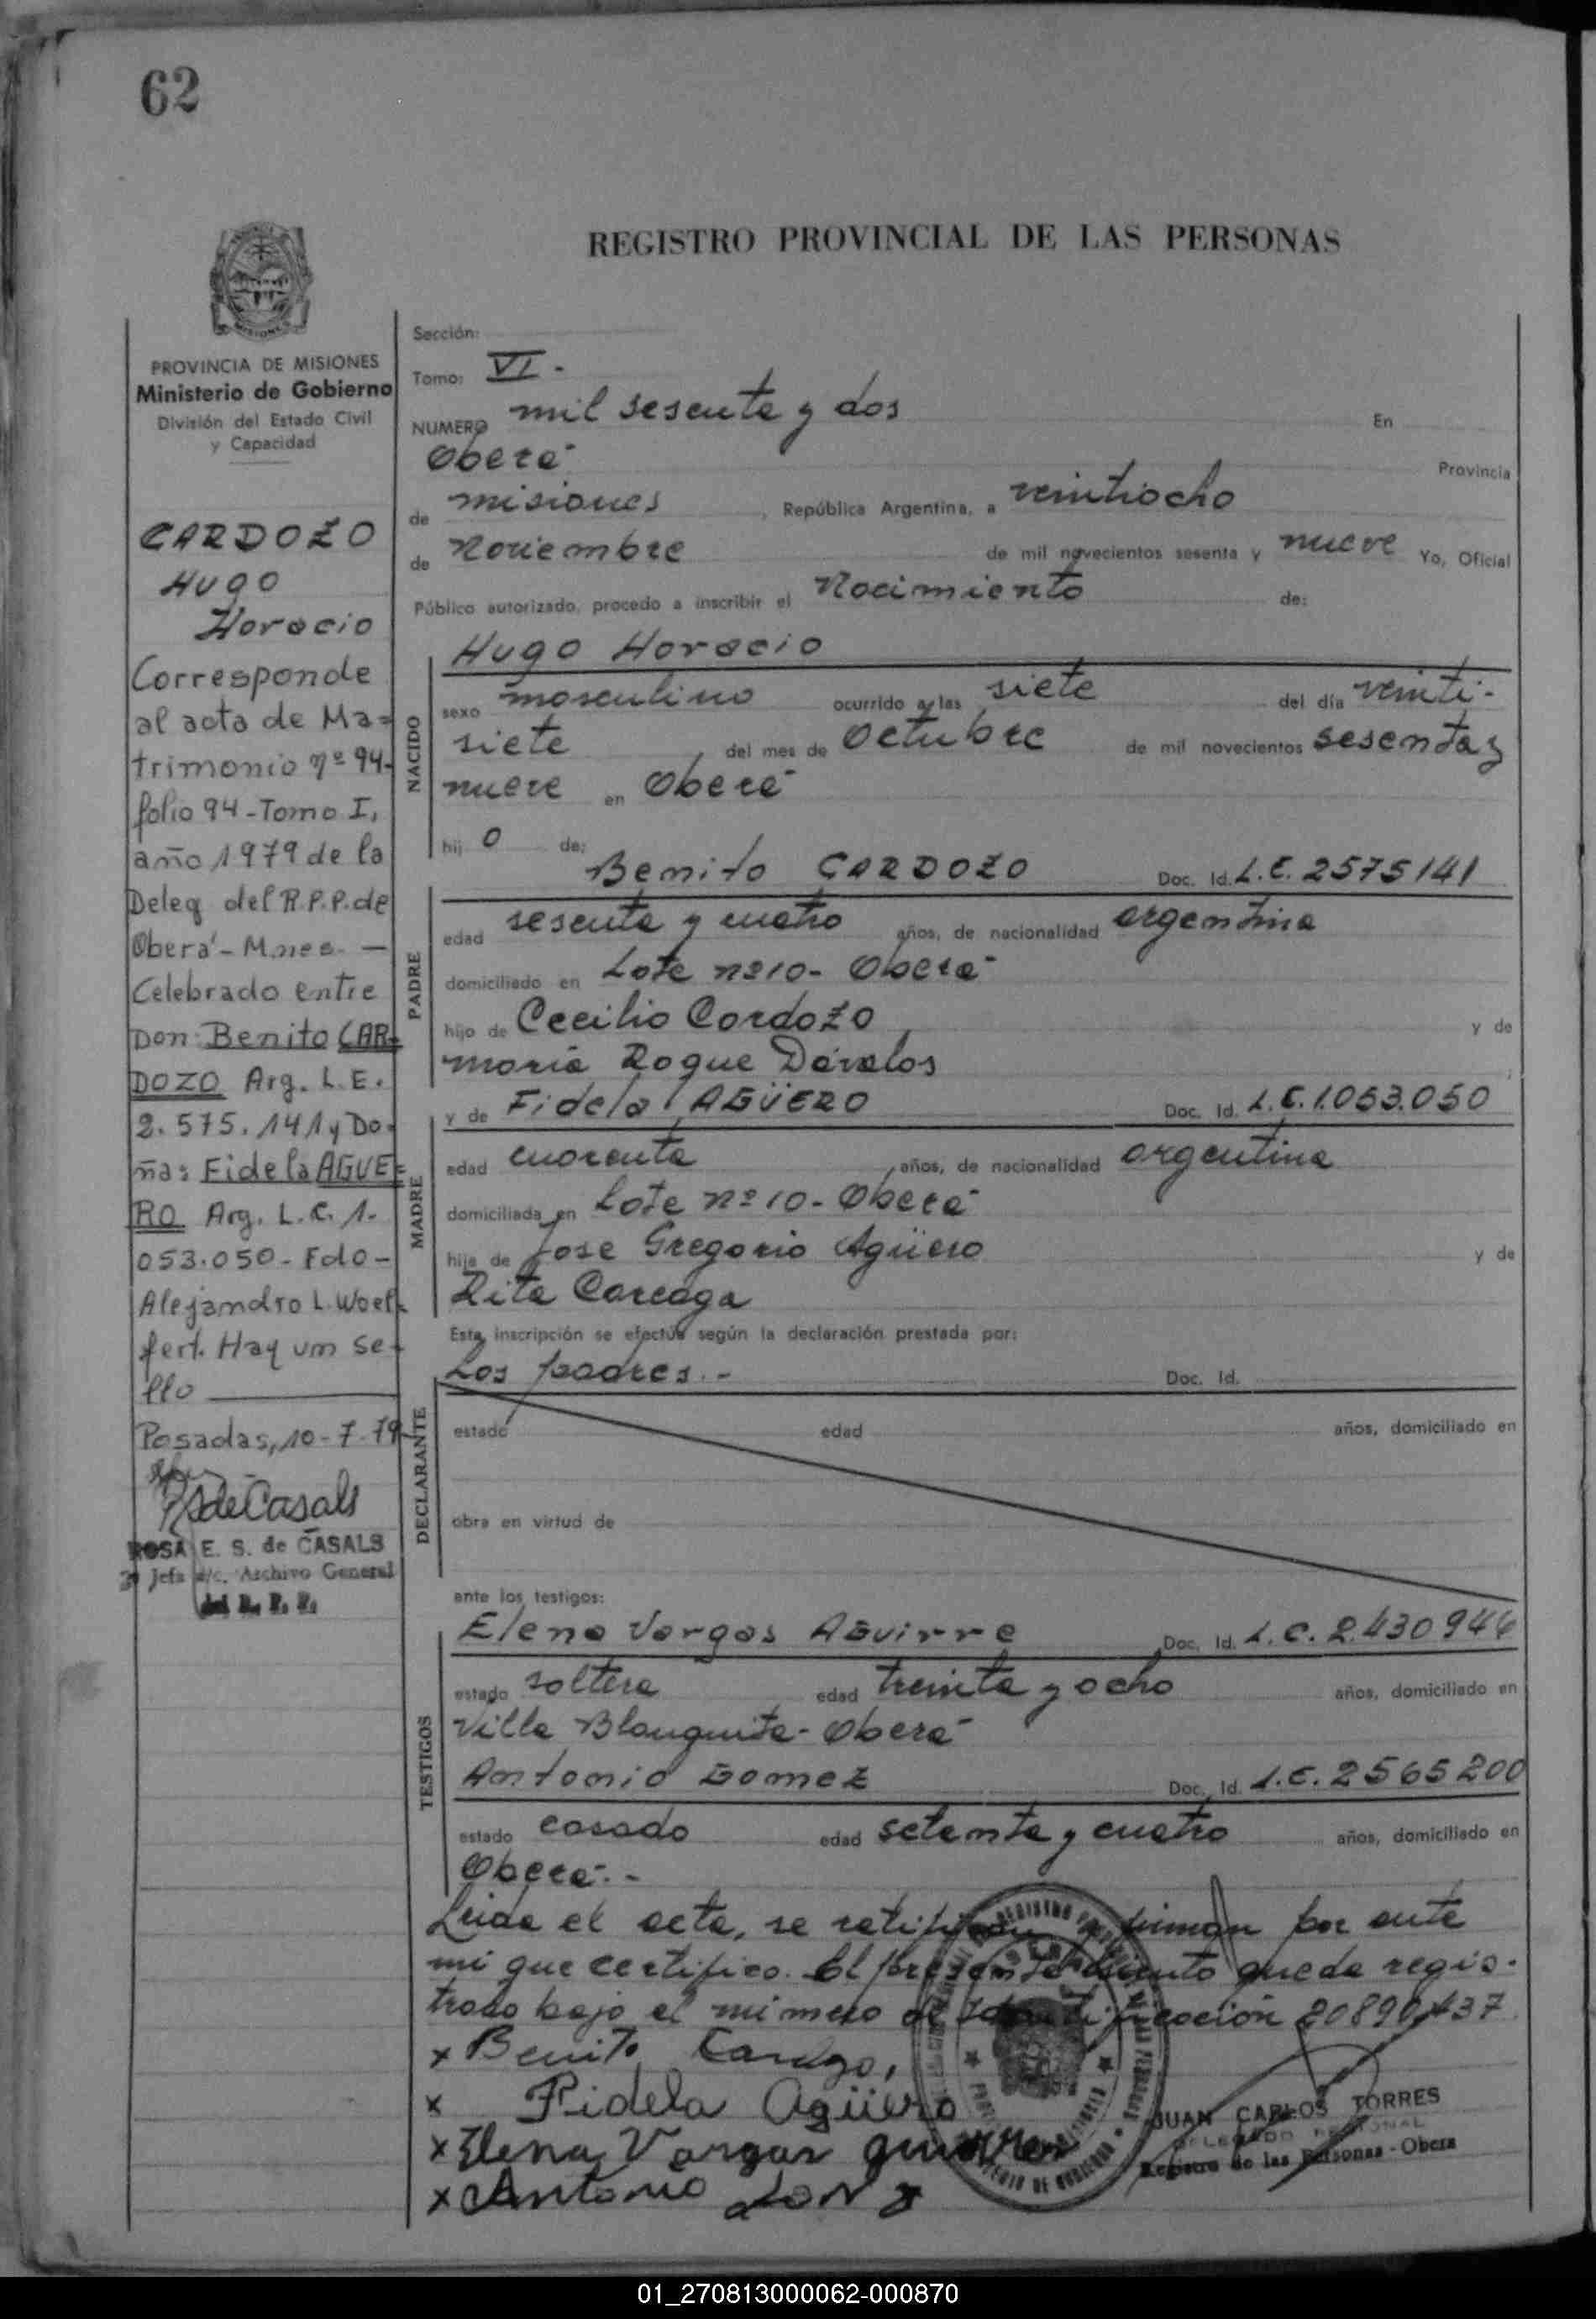 62
REGISTRO PROVINCIAL DE LAS PERSONAS
PROVINCIA DE MISIONES
Ministerio de Gobierno
División del Estado Civil
y Capacidad
CARDOZO
Hugo
Horacio
Corresponde
al acta de Ma=
trimonio nº 94-
folio 94-Tomo I,
año 1979 de la
Deleg del R.P.P. de
Oberá - Mnes. —
Celebrado entre
Don: Benito CAR-
DOZO Arg. L.E.
2.575.141 y Do-
ña: Fidela AGUE=
RO Arg. L.C. 1.
053.050 - Fdo -
Alejandro L. Woel-
fert. Hay un se-
llo
Posadas, 10-7-79
RSdeCasals
ROSA E. S. de CASALS
Jefa a/c. Archivo General
del R. P. P.
Sección:
Tomo: VI.-
NUMERO mil sesenta y dos En
Oberá Provincia
de misiones, República Argentina, a veintiocho
de Noviembre de mil novecientos sesenta y nueve Yo, Oficial
Público autorizado, procedo a inscribir el Nacimiento de:
Hugo Horacio
NACIDO
sexo masculino ocurrido a las siete del día veinti-
siete del mes de Octubre de mil novecientos sesenta y
nueve en Oberá
hij o de:
Benito CARDOZO Doc. Id. L.E. 2575141
PADRE
edad sesenta y cuatro años, de nacionalidad argentina
domiciliado en Lote nº 10- Oberá
hijo de Cecilio Cardozo y de
maría Roque Dávalos
y de Fidela AGÜERO Doc. Id. L.C. 1.053.050
MADRE
edad cuarenta años, de nacionalidad argentina
domiciliada en Lote nº 10- Oberá
hija de Jose Gregorio Agüero y de
Rita Careaga
Esta inscripción se efectúa según la declaración prestada por:
Los padres.- Doc. Id.
DECLARANTE
estado edad años, domiciliado en
obra en virtud de
ante los testigos:
Elena Vargas Aguirre Doc. Id. L.C. 2.430946
TESTIGOS
estado soltera edad treinta y ocho años, domiciliado en
Villa Blanquita- Oberá
Antonio Gomez Doc. Id. L.E. 2565200
estado casado edad setenta y cuatro años, domiciliado en
Oberá.-
Leida el acta, se ratifican y firman por ante
mi que certifico. El presente asiento queda regis-
trado bajo el número de Identificación 20890437
x Benito Cardozo,
x Fidela Agüero
x Elena Vargas
x Antonio
JUAN CARLOS TORRES
DELEGADO REGIONAL
Registro de las Personas - Obera
01_270813000062-000870